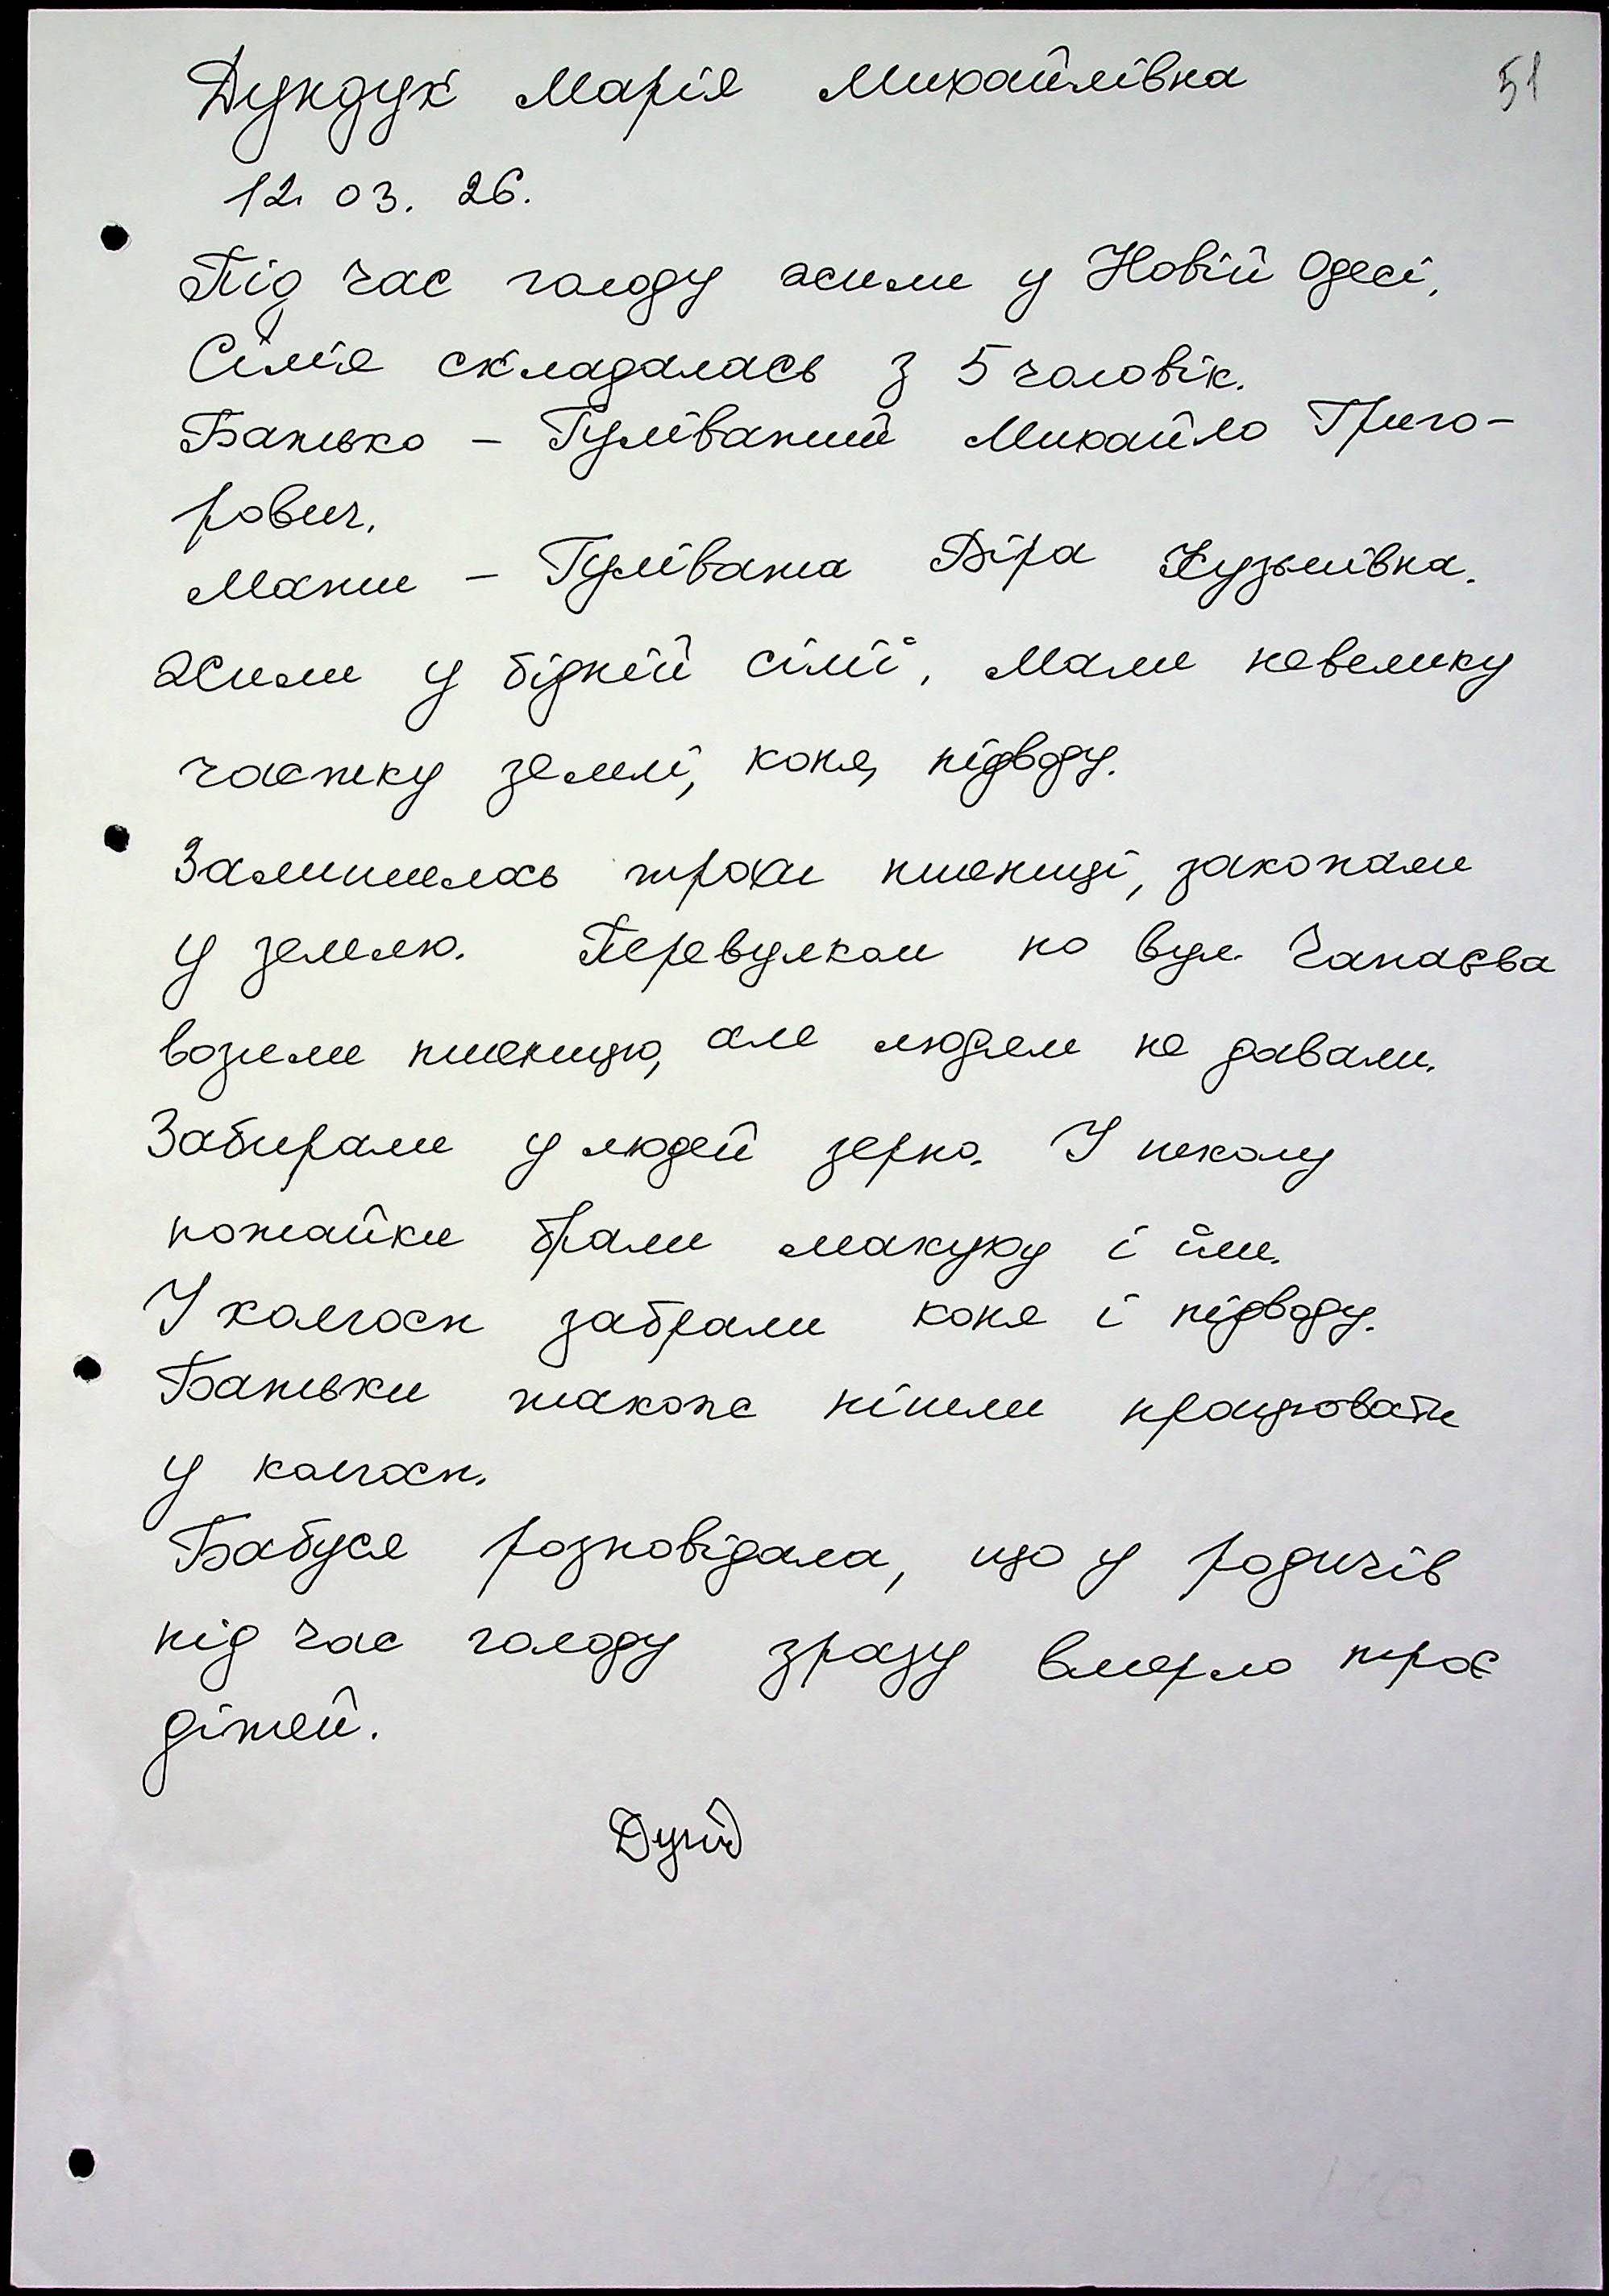 51
Дундук Марія Михайлівна
12. 03. 26.
Під час голоду жили у Новій Одесі.
Сім'я складалась з 5 чоловік.
Батько – Гуліватий Михайло Григо-
рович.
Мати – Гулівата Віра Кузьмівна.
Жили у бідній сім'ї, мали невелику
частку землі, коня, підводу.
Залишилось трохи пшениці, закопали
у землю. Перевулком по вул. Чапаєва
возили пшеницю, але людям не давали.
Забирали у людей зерно. У школу
потайки брали макуху і їли.
У колгосп забрали коня і підводу.
Батьки також пішли працювати
у колгосп.
Бабуся розповідала, що у родичів
під час голоду зразу вмерло троє
дітей.